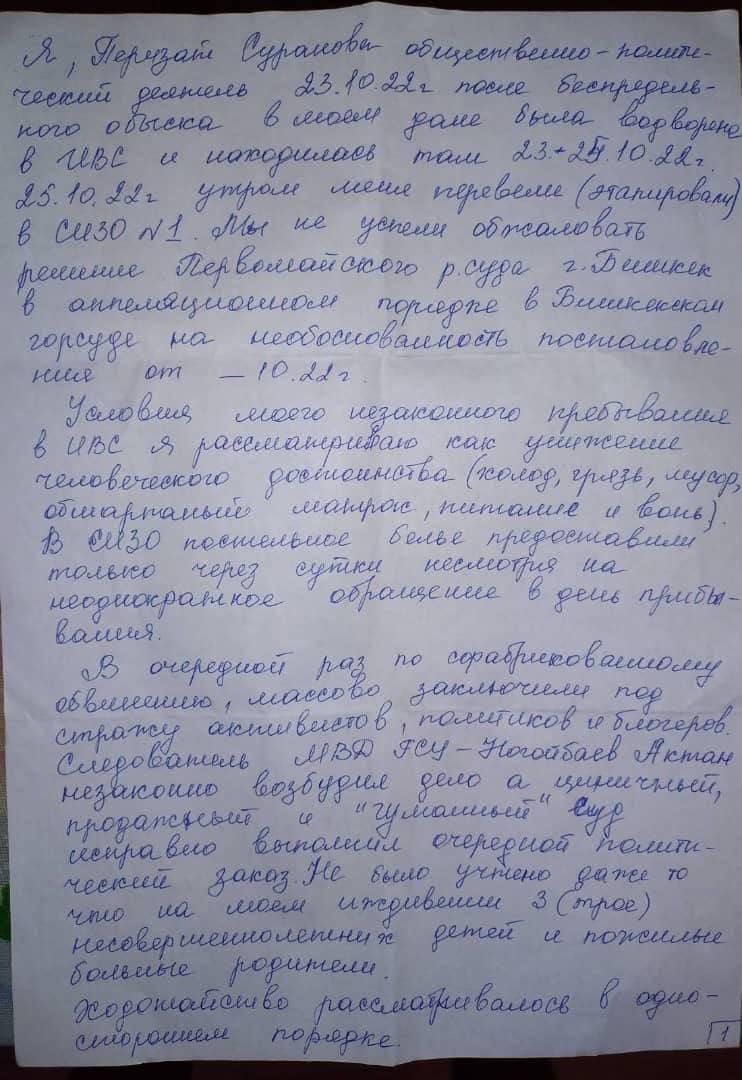 Я, Перизат Суранова общественно-полити-
ческий деятель 23.10.22г после беспредель-
ного обыска в моем доме была водворена
в ИВС и находилась там 23.+24.10.22г.
25.10.22г утром меня перевели (этапировали)
в СИЗО №1. Мы не успели обжаловать
решение Первомайского р.суда г.Бишкек
в аппеляционном порядке в Бишкекском
горсуде на необоснованность постановле-
ния от — 10.22г.
Условия моего незаконного пребывания
в ИВС я рассматриваю как унижение
человеческого достоинства (холод, грязь, мусор,
обшарпаный матрас, питание и вонь).
В СИЗО постельное белье предоставили
только через сутки несмотря на
неоднократное обращение в день прибы-
вания.
В очередной раз по сфабрикованному
обвинению, массово заключили под
стражу активистов, политиков и блогеров.
Следователь МВД ГСУ – Ногойбаев Актан
незаконно возбудил дело а циничный,
продажный и "гуманный" суд
исправно выполнил очередной полити-
ческий заказ. Не было учтено даже то
что на моем иждивении 3 (трое)
несовершеннолетних детей и пожилые
больные родители.
Ходотайство рассматривалось в одно-
стороннем порядке.
1